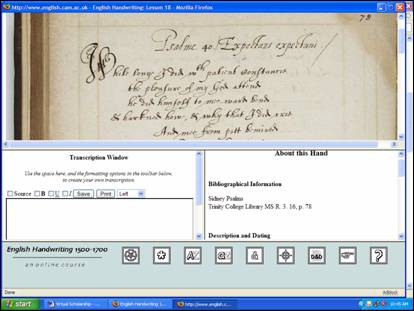 http://www.english.cam.ac.uk - English Handwriting: Lesson 18 - Mozilla Firefox
78
Psalme 40. Expectans expectavi.
While longe I did wth patient constance
the pleasure of my God attend
he did himself to mee-ward bend
& harkned how, & why that I did crie
And mee from pitt
Transcription Window
Use the space here, and the formatting options in the toolbar below,
to create your own transcription.
Source B U I Save Print Left
About this Hand
Bibliographical Information
Sidney Psalms
Trinity College Library MS R. 3. 16, p. 78
Description and Dating
English Handwriting 1500-1700
an online course
Done
Adblock
start
Virtual Scholarship -...
English Handwriting: 1...
http://www.english.c...
10:45 AM